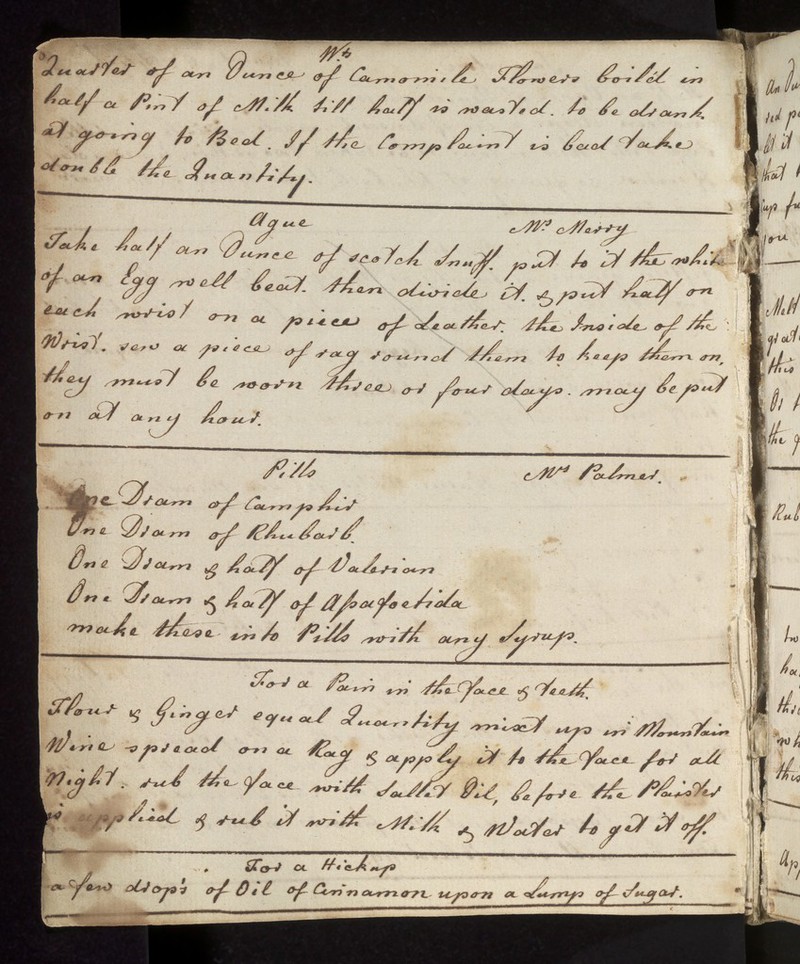 Wt
Quarter of an Ounce of Camomile Flowers boil'd in
half a Pint of Milk till half is wasted. to be drank
at going to Bed. If the Complaint is bad take
double the Quantity.
Ague Mrs Merry
Take half an Ounce of scotch Snuff. put to it the white
of an Egg well beat. then divide it. & put half on
each wrist on a piece of Leather. the Inside of the
Wrist. sew a piece of rag round them to keep them on,
they must be worn three or four days. may be put
on at any hour.
Pills Mrs Palmer.
One Dram of Camphir
One Dram of Rhubarb.
One Dram & half of Valerian
One Dram & half of Assafoetida
make these into Pills with any Syrup.
For a Pain in the face & teeth.
Flour & Ginger equal Quantity mixt up in Mountain
Wine spread on a Rag & apply it to the face for all
Night. rub the face with Sallet Oil, before the Plaister
is applied & rub it with Milk & Water to get it off.
For a Hickup
a few drop's of Oil of Cinnamon upon a Lump of Sugar.